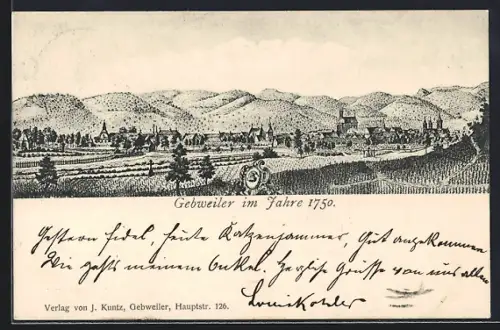 Gebweiler im Jahre 1750.
Gestern fidel, heute Katzenjammer, Gut angekommen
Wie gehts meinem Onkel. Herzliche Grüsse von uns allen
Louis Kohler
Verlag von J. Kuntz, Gebweiler, Hauptstr. 126.